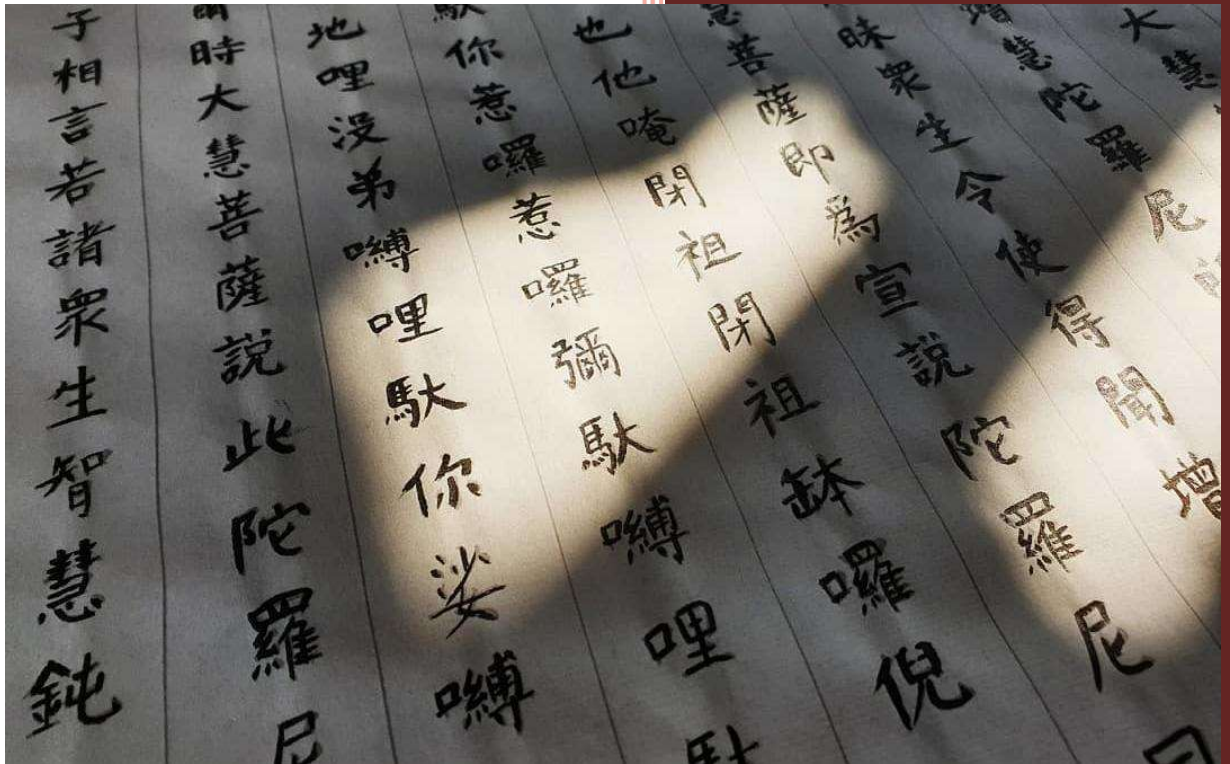 大慧
增慧陀羅尼
昧衆生令使得聞增
慧菩薩即爲宣說陀羅尼曰
也他唵閉祖閉祖鉢囉倪
馱你惹囉惹囉彌馱嚩哩馱
地哩没弟嚩哩馱你娑嚩
時大慧菩薩說此陀羅尼
子相言若諸衆生智慧鈍